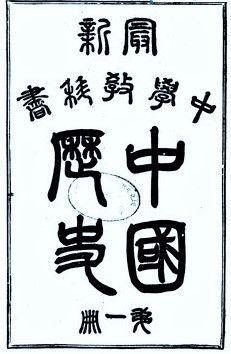 最新
中學教科書
中國
歷史
第一冊